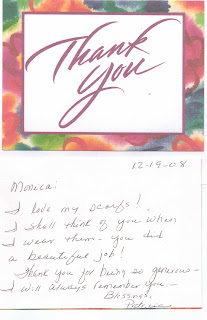 Thank
you
12-19-08
Monica:
I love my scarfs!
I shall think of you when
I wear them - you did
a beautiful job!
Thank you for being so generous -
I will always remember you -
Blessings,
Patricia